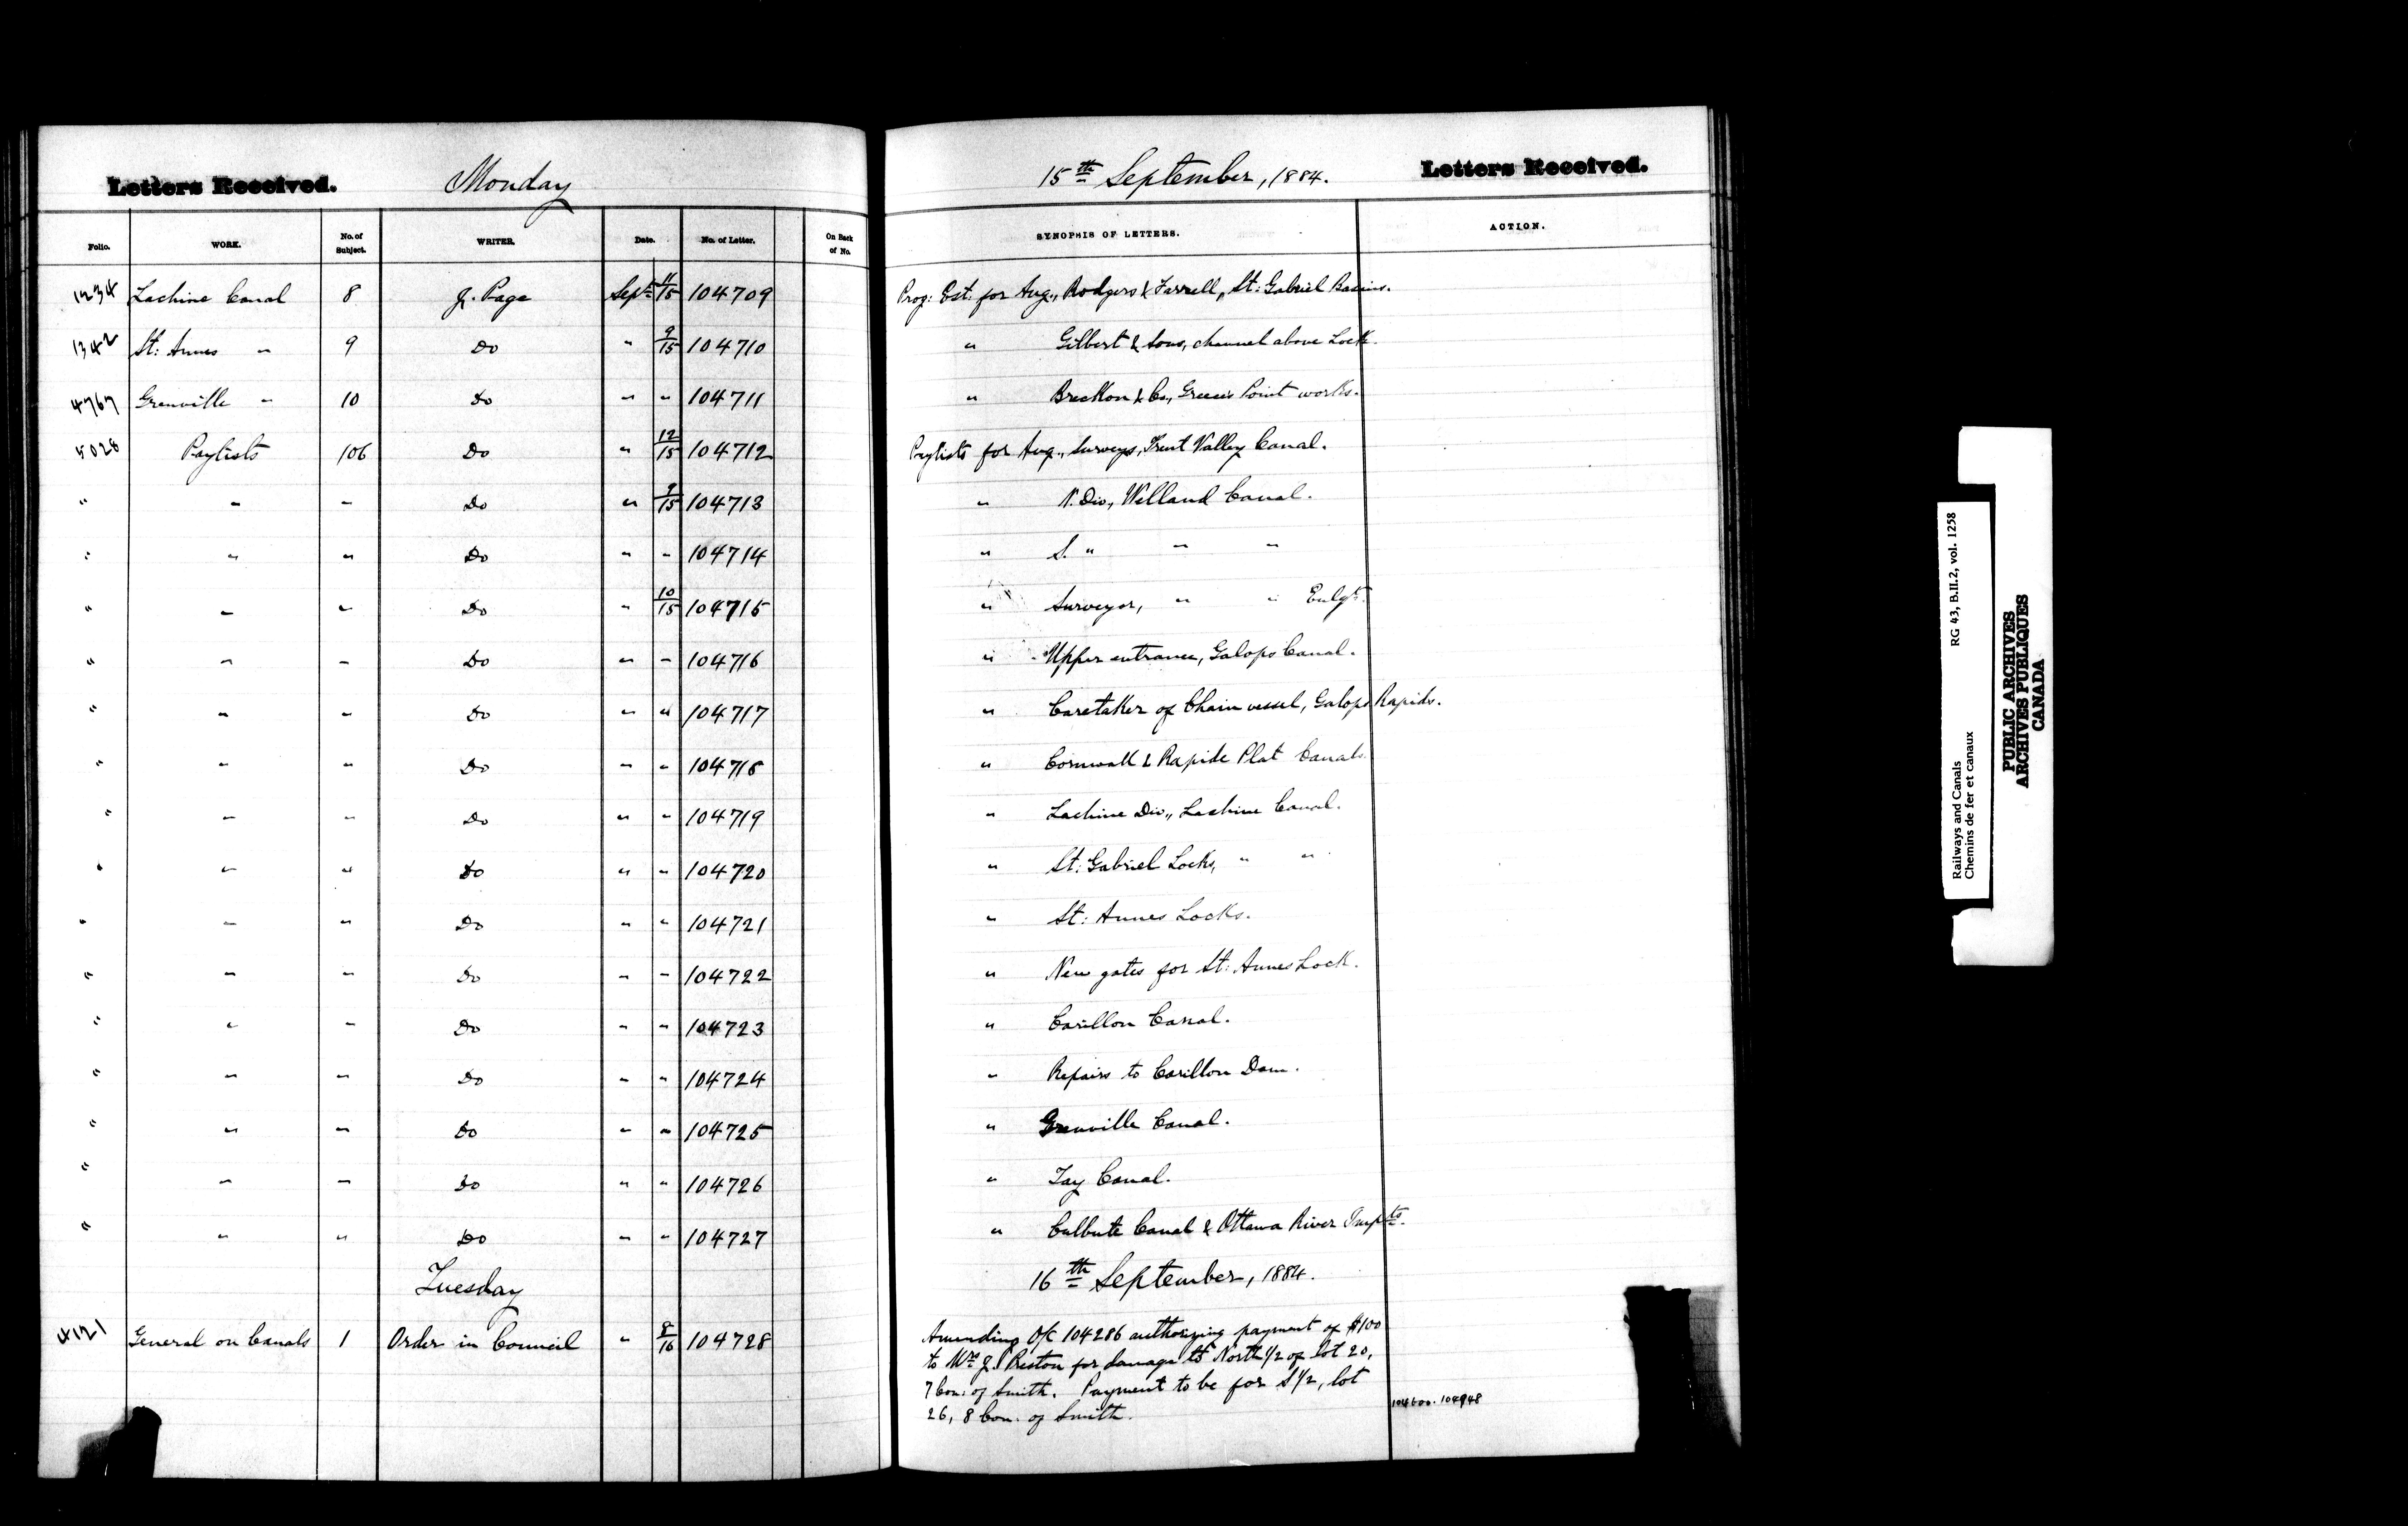 Letters Received. Monday 15th September, 1884. Letters Received.
Folio. WORK. No. of Subject. WRITER. Date. No. of Letter. On Back of No. SYNOPSIS OF LETTERS. ACTION.
1234 Lachine Canal 8 J. Page Sept. 11/15 104709 Prog: Est: for Aug., Rodgers & Farrell, St: Gabriel Basins.
1342 St: Annes " 9 Do " 9/15 104710 " Gilbert & Sons, channel above Lock.
4767 Grenville " 10 Do " " 104711 " Breckon & Co, Greece's Point works.
5028 Paylists 106 Do " 12/15 104712 Paylists for Aug., surveys, Trent Valley Canal.
" " " Do " 9/15 104713 " N. Div, Welland Canal.
" " " Do " " 104714 " S. " " "
" " " Do " 10/15 104715 " Surveyor, " " Enlgt.
" " " Do " " 104716 " Upper entrance, Galops Canal.
" " " Do " " 104717 " Caretaker of Chain vessel, Galops Rapids.
" " " Do " " 104718 " Cornwall & Rapide Plat Canals.
" " " Do " " 104719 " Lachine Div., Lachine Canal.
" " " Do " " 104720 " St: Gabriel Locks, " "
" " " Do " " 104721 " St: Annes Locks.
" " " Do " " 104722 " New gates for St: Annes Lock.
" " " Do " " 104723 " Carillon Canal.
" " " Do " " 104724 " Repairs to Carillon Dam.
" " " Do " " 104725 " Grenville Canal.
" " " Do " " 104726 " Tay Canal.
" " " Do " " 104727 " Culbute Canal & Ottawa River Impts.
Tuesday 16th September, 1884.
4121 General on Canals 1 Order in Council " 8/16 104728 Amending O/C 104286 authorizing payment of $100
to Mrs J. Preston for damage to North 1/2 of lot 20,
7 Con: of Smith. Payment to be for S 1/2, lot
26, 8 Con. of Smith. 104948
Railways and Canals RG 43, B.II.2, vol. 1258
Chemins de fer et canaux
PUBLIC ARCHIVES
ARCHIVES PUBLIQUES
CANADA